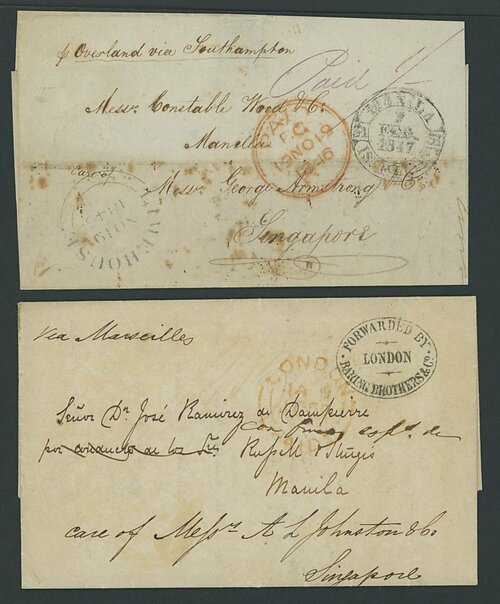 p Overland via Southampton
Paid 1/
Messrs Constable Wood & Co.
Manilla
Care of
Messrs George Armstrong & Co
Singapore
PAID
19 NO 19
1846
MANILA
7
FEB.
1847
NO 19
LIMEHOUSE
via Marseilles
FORWARDED BY
LONDON
BARING BROTHERS & Co.
LONDON
Señor Dn José Ramirez de Dampierre
por conducto de los Srs Russell & Sturgis
Manila
care of Messrs A L Johnston & Co
Singapore